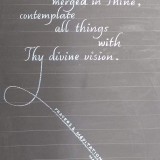 merged in Thine,
contemplate
all things
with
Thy divine vision.